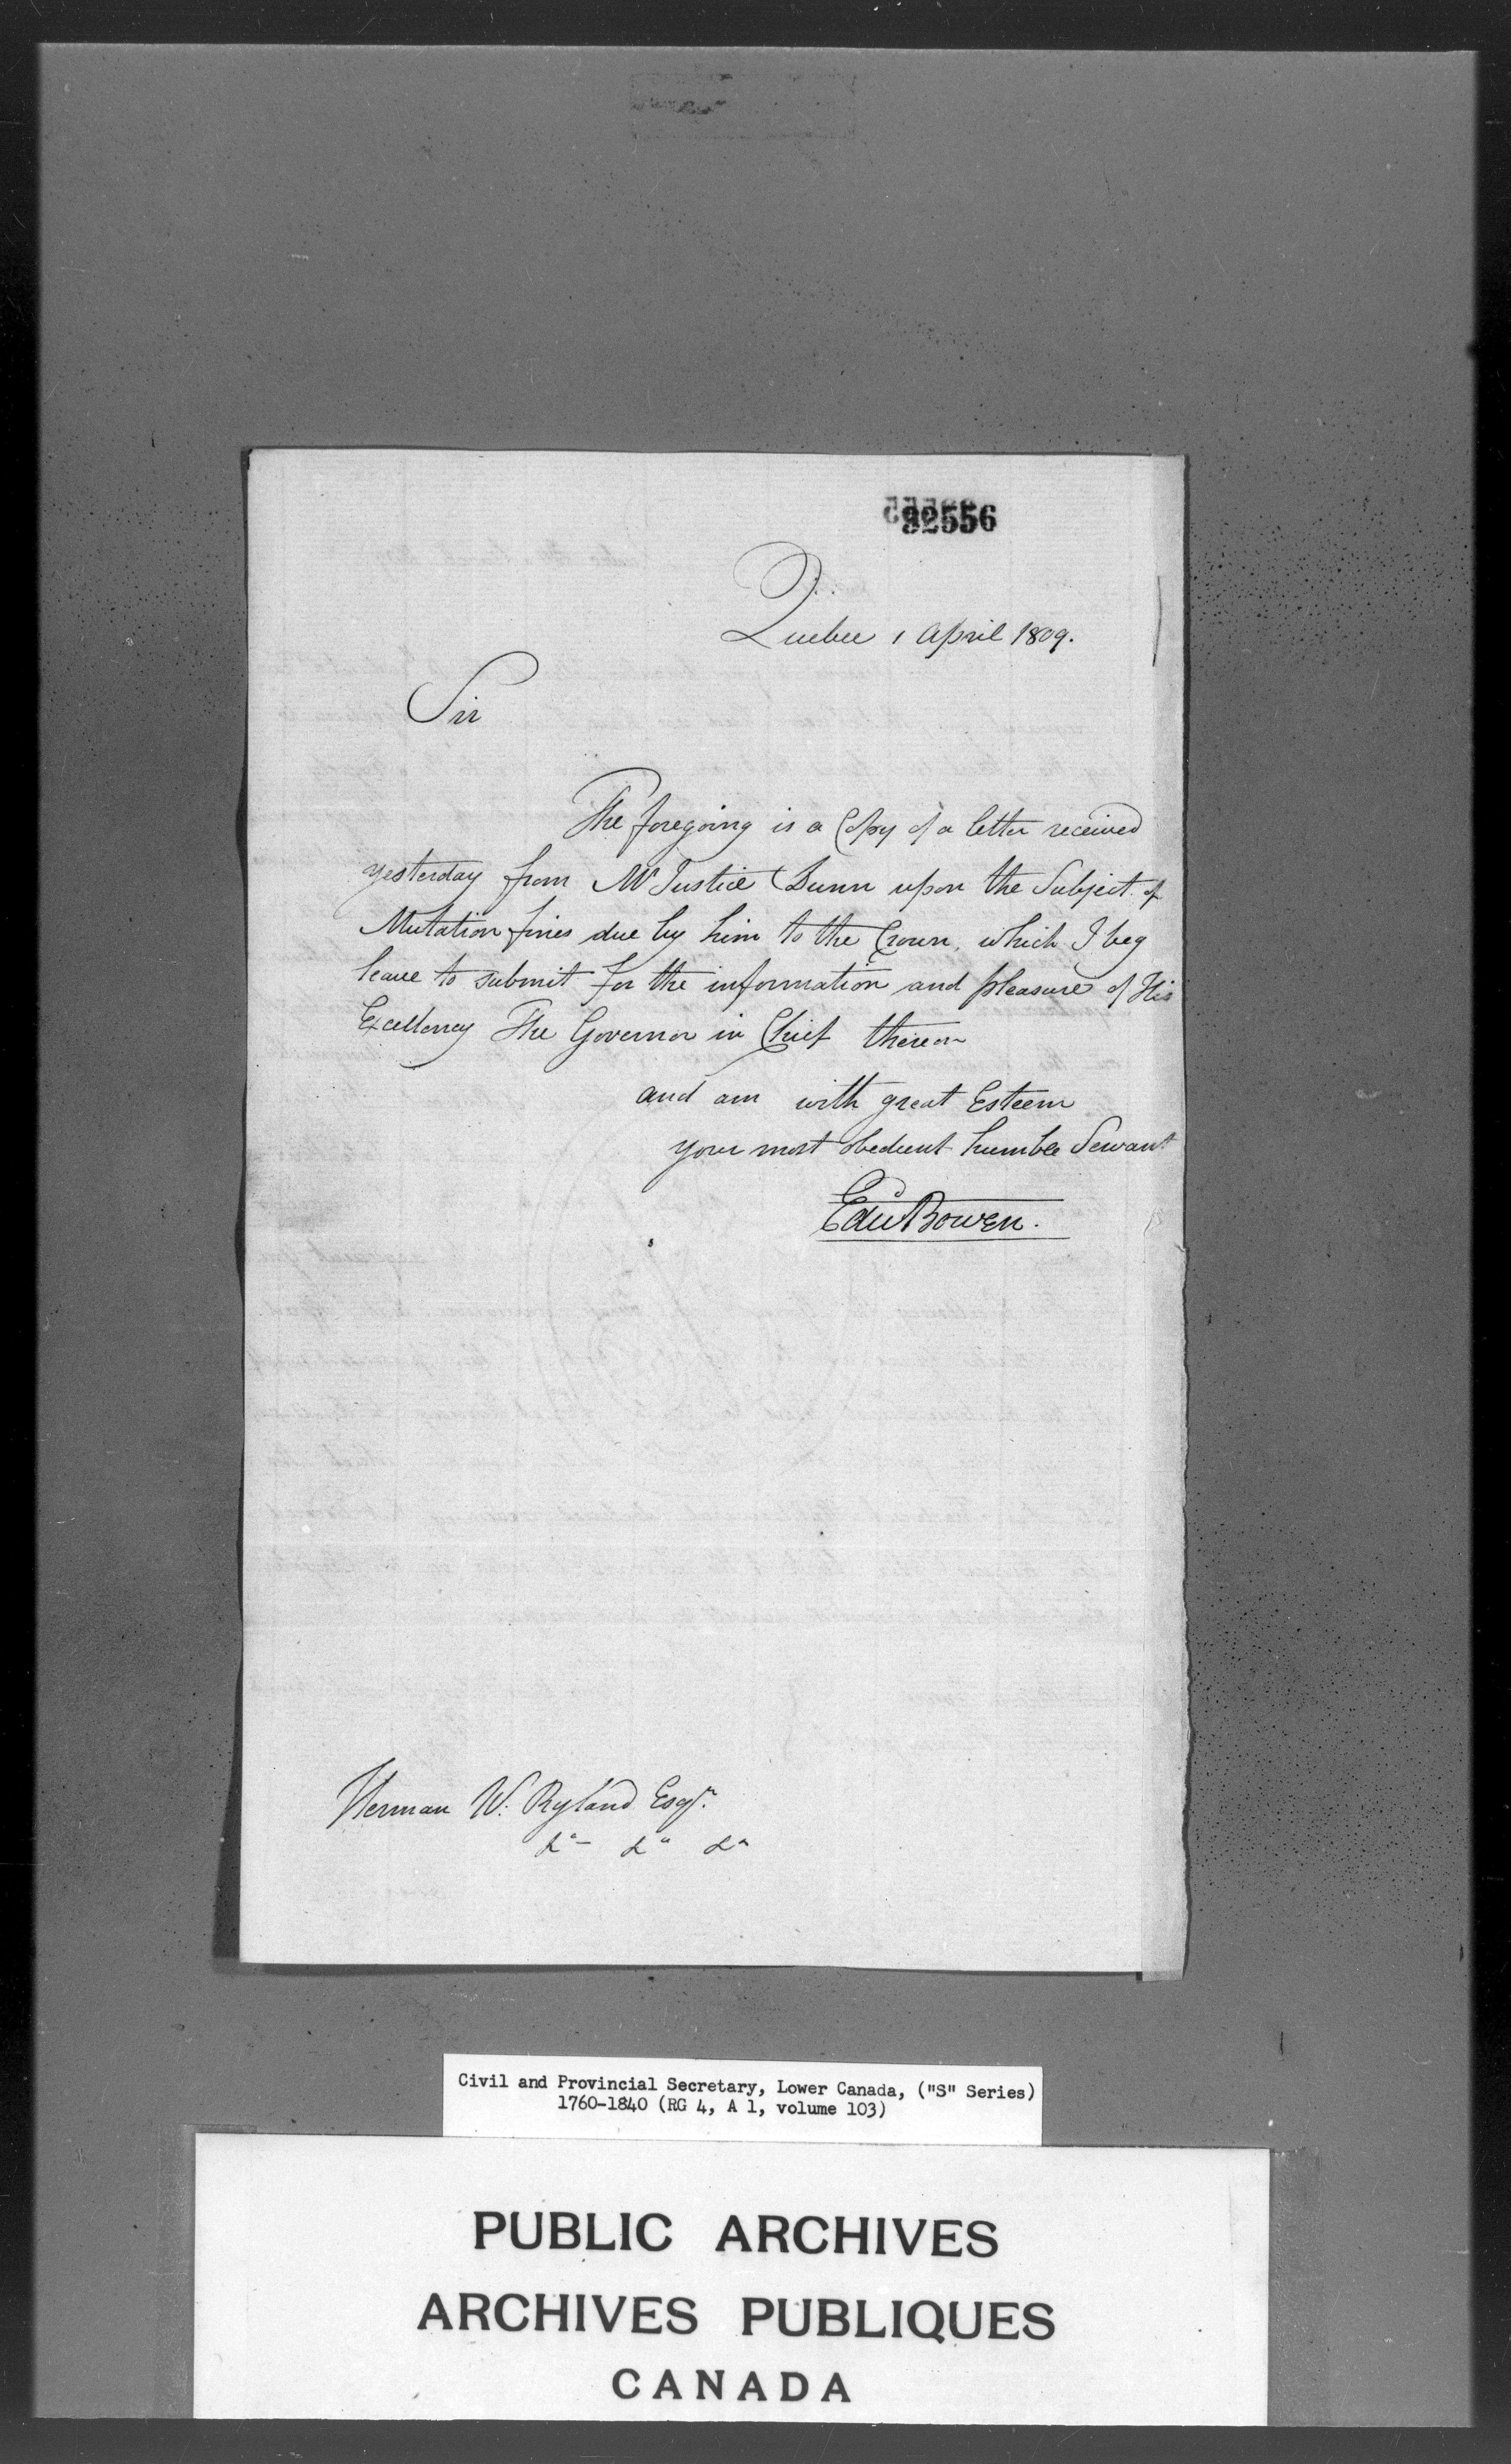 32556
Quebec 1 April 1809.
Sir
The foregoing is a Copy of a letter received
yesterday from Mr Justice Dunn upon the Subject of
Mutation fines due by him to the Crown, which I beg
leave to submit for the information and pleasure of His
Excellency The Governor in Chief thereon
and am with great Esteem
your most obedient humble Servant
Edwd Bowen.
Herman W: Ryland Esqr.
&a - &a &a
Civil and Provincial Secretary, Lower Canada, ("S" Series)
1760-1840 (RG 4, A 1, volume 103)
PUBLIC ARCHIVES
ARCHIVES PUBLIQUES
CANADA